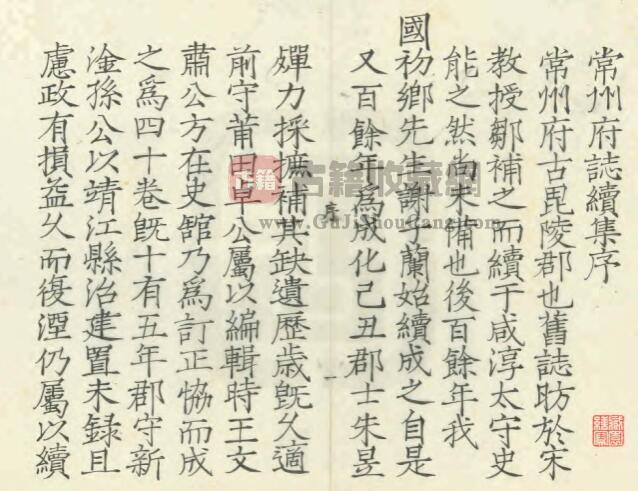 常州府誌續集序
常州府古毘陵郡也舊誌昉於宋
教授鄒補之而續于咸淳太守史
能之然尚未備也後百餘年我
國初鄉先生謝子蘭始續成之自是
又百餘年為成化己丑郡士朱昱
殫力採摭補其缺遺歷歲既久適
前守莆田卓公屬以編輯時王文
肅公方在史館乃為訂正協而成
之為四十卷既十有五年郡守新
淦孫公以靖江縣治建置未録且
慮政有損益久而復湮仍屬以續
序
一
古籍
古籍收藏網
www.GuJiShouCang.com